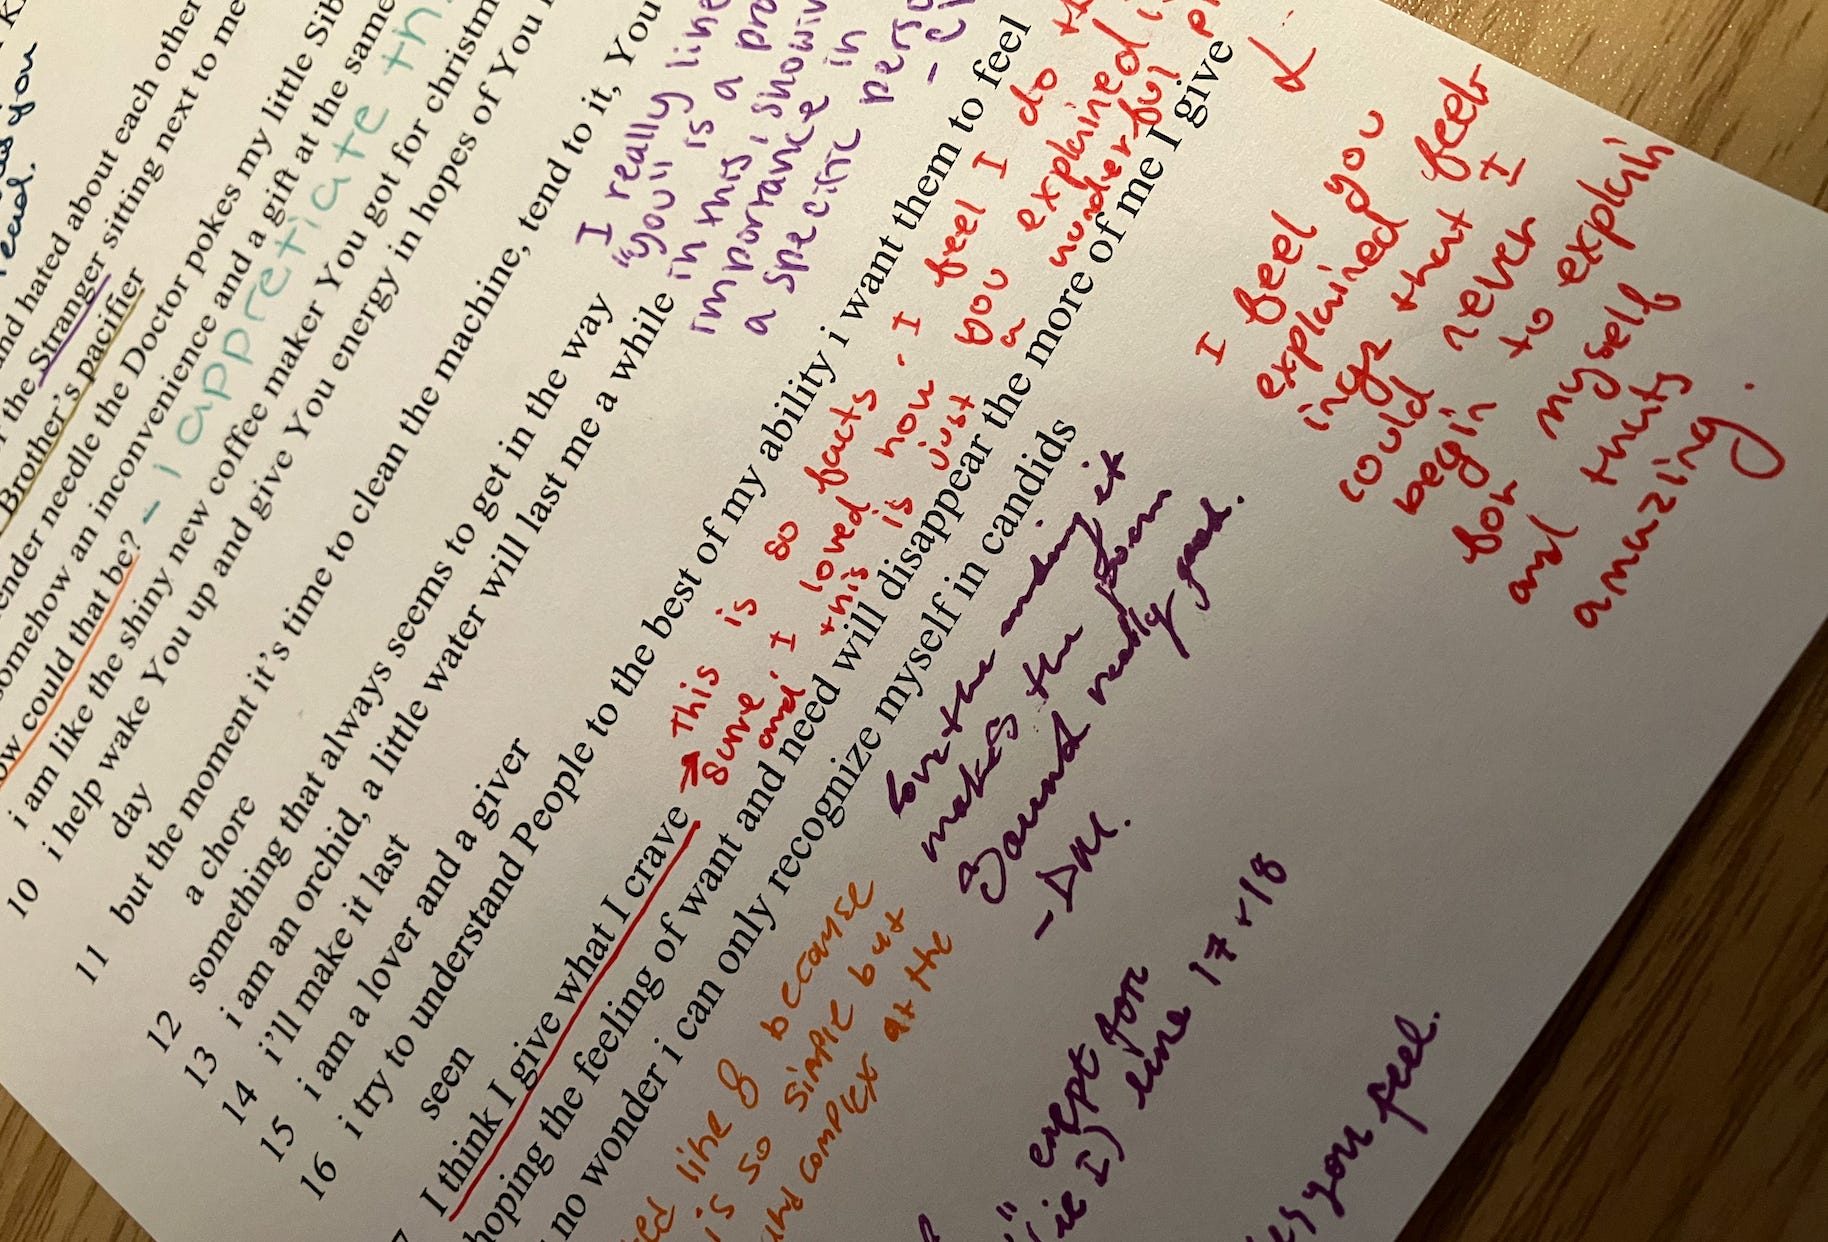 and hated about each other
the Stranger sitting next to me
Brother's pacifier
needle the Doctor pokes my little Sib
somehow an inconvenience and a gift at the same
ow could that be? - I appretiate th
i am like the shiny new coffee maker You got for christm
10 i help wake You up and give You energy in hopes of You
day
11 but the moment it's time to clean the machine, tend to it, You
a chore
12 something that always seems to get in the way
13 i am an orchid, a little water will last me a while
14 i'll make it last
15 i am a lover and a giver
16 i try to understand People to the best of my ability i want them to feel
seen
I think I give what I crave
hoping the feeling of want and need will disappear the more of me I give
no wonder i can only recognize myself in candids
I really line
"you" is a pro
in this, showin
importance in
a specific perso
This is so facts. I feel I do
and I loved how you explained
this is just a wonderful
I feel you
explained feel
ings that I
could never
begin to
for to explain
myself
and thats
amazing.
love the ending it
makes the poem
sound really good.
line 8 because
is so simple but
complex at the
except for
line 17 + 18
you feel.